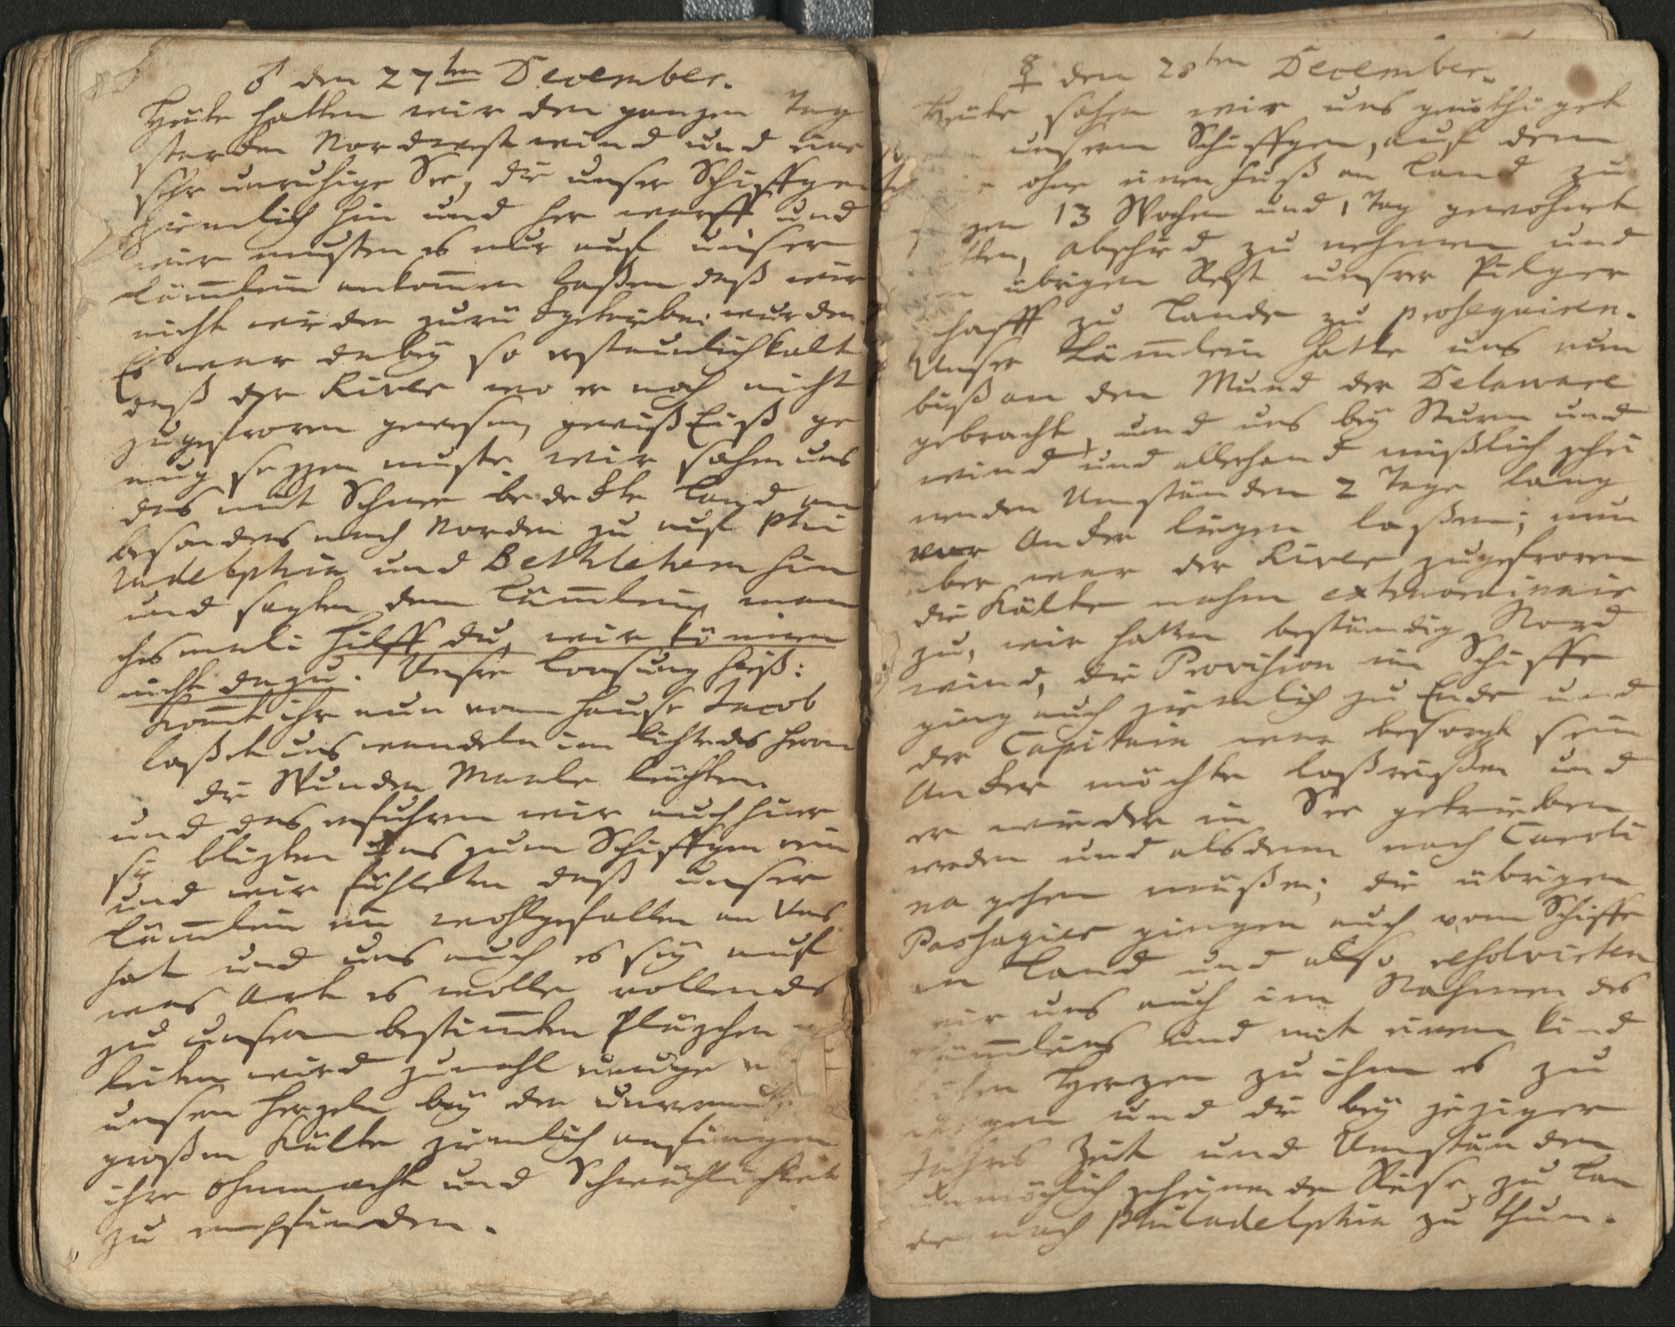 ♂ den 27ten December.
Heute hatten wir den ganzen Tag
starken Nordwestwind und eine
sehr unruhige See, die unser Schiffgen
ziemlich hin und her warff und
wir musten es nur auf unser
Lämmlein ankommen laßen daß wir
nicht wieder zurückgetrieben wurden.
Es war dabey so erstaunlich kalt
daß der River wo er noch nicht
zugefroren gewesen, gewiß Eiß ge
nug sezzen muste wir sahen uns
das mit Schnee bedeckte Land an
besonders nach Norden zu auf Phi
ladelphia und Bethlehem hin
und sagten dem Lämmlein man
chesmal: Hilff du, wir können
nicht dazu. Unsre Loosung hieß:
Komt ihr nun vom Hause Jacob
laßet uns wandeln im Lichte des Herrn
die Wunden Maale leuchten.
und das erfuhren wir auch hier
sie blizten uns zum Schiffgen ein
und wir fühleten daß unser
Lämmlein ein wohlgefallen an Uns
hat und uns auch es sey auf
was Art es wolle vollends
zu unserm bestimmten Pläzchen
leiten wird zumahl einige
unsern Herzeln bey der
großen Kälte ziemlich anfingen
ihre Ohnmacht und Schwächlichkeit
zu empfinden.
☿ den 28ten December.
Heute sahen wir uns genöthiget
unserm Schiffgen, auf dem
ohne einen Fuß an Land zu
13 Wochen und 1 Tag gewohnt
Abschied zu nehmen und
übrigen Rest unsrer Pilger
schafft zu Lande zu prosequiren.
Unser Lämmlein hatte uns nun
biß an den Mund der Delaware
gebracht, und uns bey Sturm und
wind und allerhand mißlich schei
nenden Umständen 2 Tage lang
vor Anker liegen laßen; nun
aber war der River zugefroren
die Kälte nahm extraordinair
zu, wir hatten beständig Nord
wind, die Provision im Schiffe
ging auch ziemlich zu Ende und
der Capitain war besorgt sein
Anker möchte loßreißen und
er wieder in See getrieben
werden und alsdenn nach Caroli
na gehen müßen; die übrigen
Passagier gingen auch vom Schiffe
an Land und also resolvirten
wir uns auch im Nahmen des
Lämmleins und mit einem kind
lichen Herzen zu ihm es zu
und die bey jeziger
Jahres Zeit und Umständen
unmöglich scheinende Reise zu Lan
de nach Philadelphia zu thun.